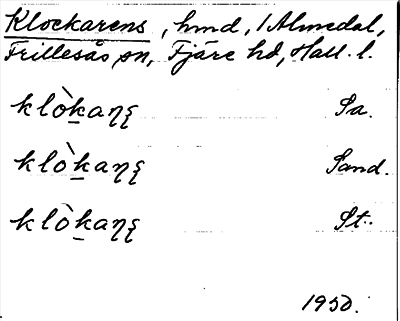 Klockarens, hmd, i Almedal,
Frillesås sn, Fjäre hd, Hall. l.
klò̱kaŋʂ Sa.
klò̱kaŋʂ Sand.
klò̱kaŋʂ St.
1950.